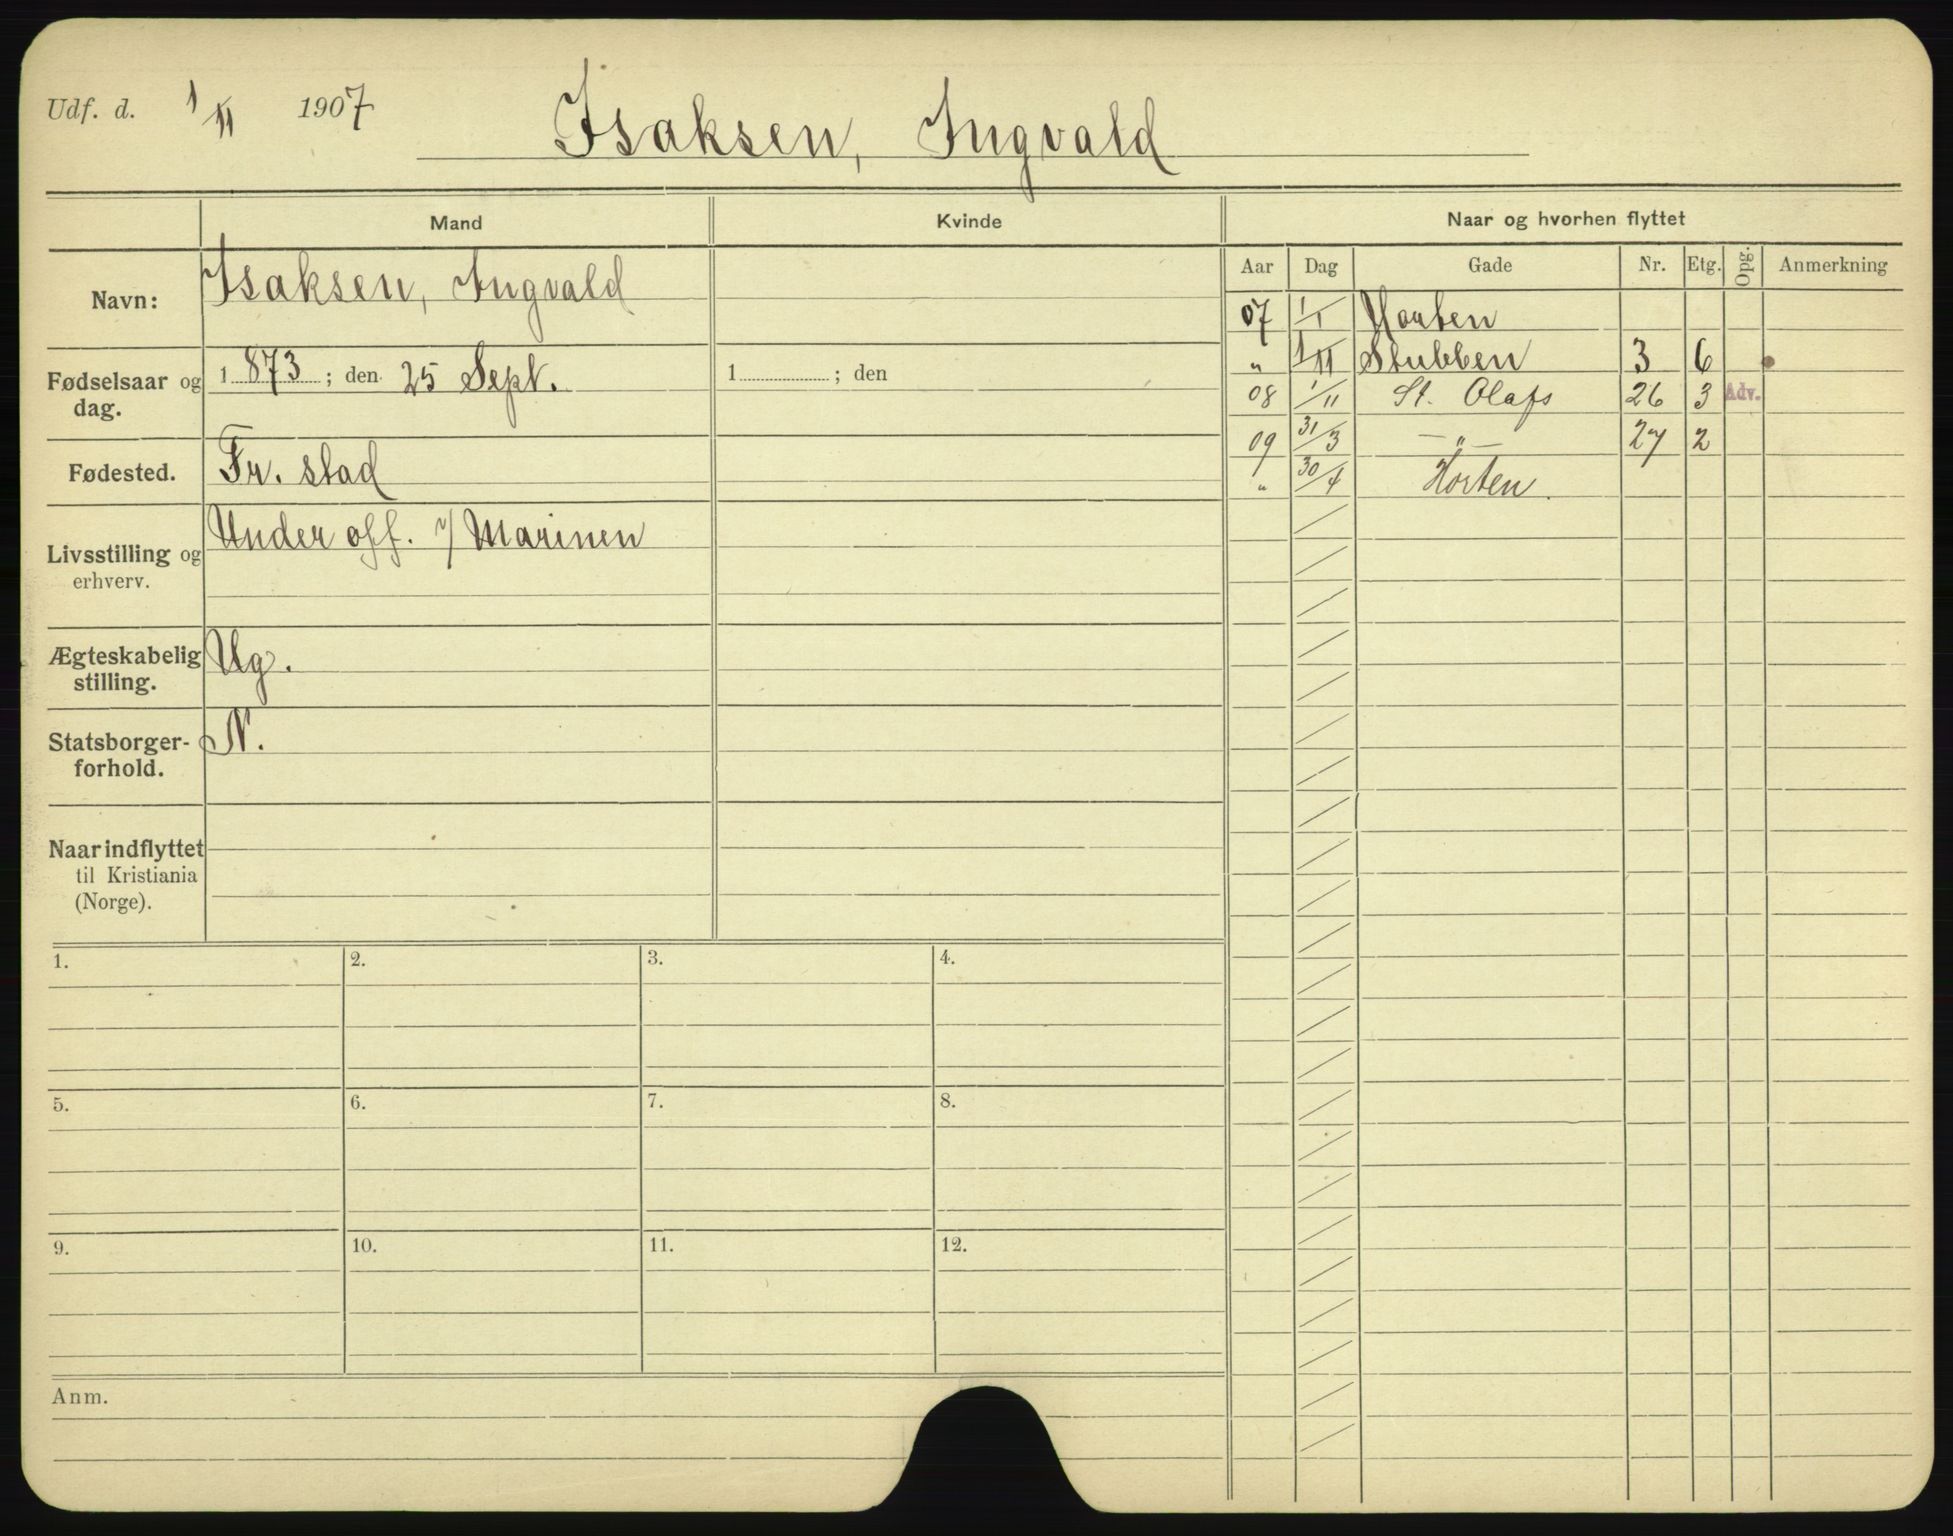 Udf. d. 1/11 1907
Isaksen, Ingvald
Mand Kvinde Naar og hvorhen flyttet
Aar Dag Gade Nr. Etg. Opg. Anmerkning
Navn: Isaksen, Ingvald
Fødselsaar og dag. 1873; den 25 Sept. 1 ; den
Fødested. Fr. stad
Livsstilling og erhverv. Under off. v/ Marinen
Ægteskabelig stilling. Ug.
Statsborger-forhold. N.
Naar indflyttet
til Kristiania
(Norge).
07 1/1 Horten
" 1/11 Stubben 3 6
08 1/11 St. Olafs 26 3 Adv.
09 31/3 — " — 27 2
" 30/4 Horten.
1. 2. 3. 4.
5. 6. 7. 8.
9. 10. 11. 12.
Anm.